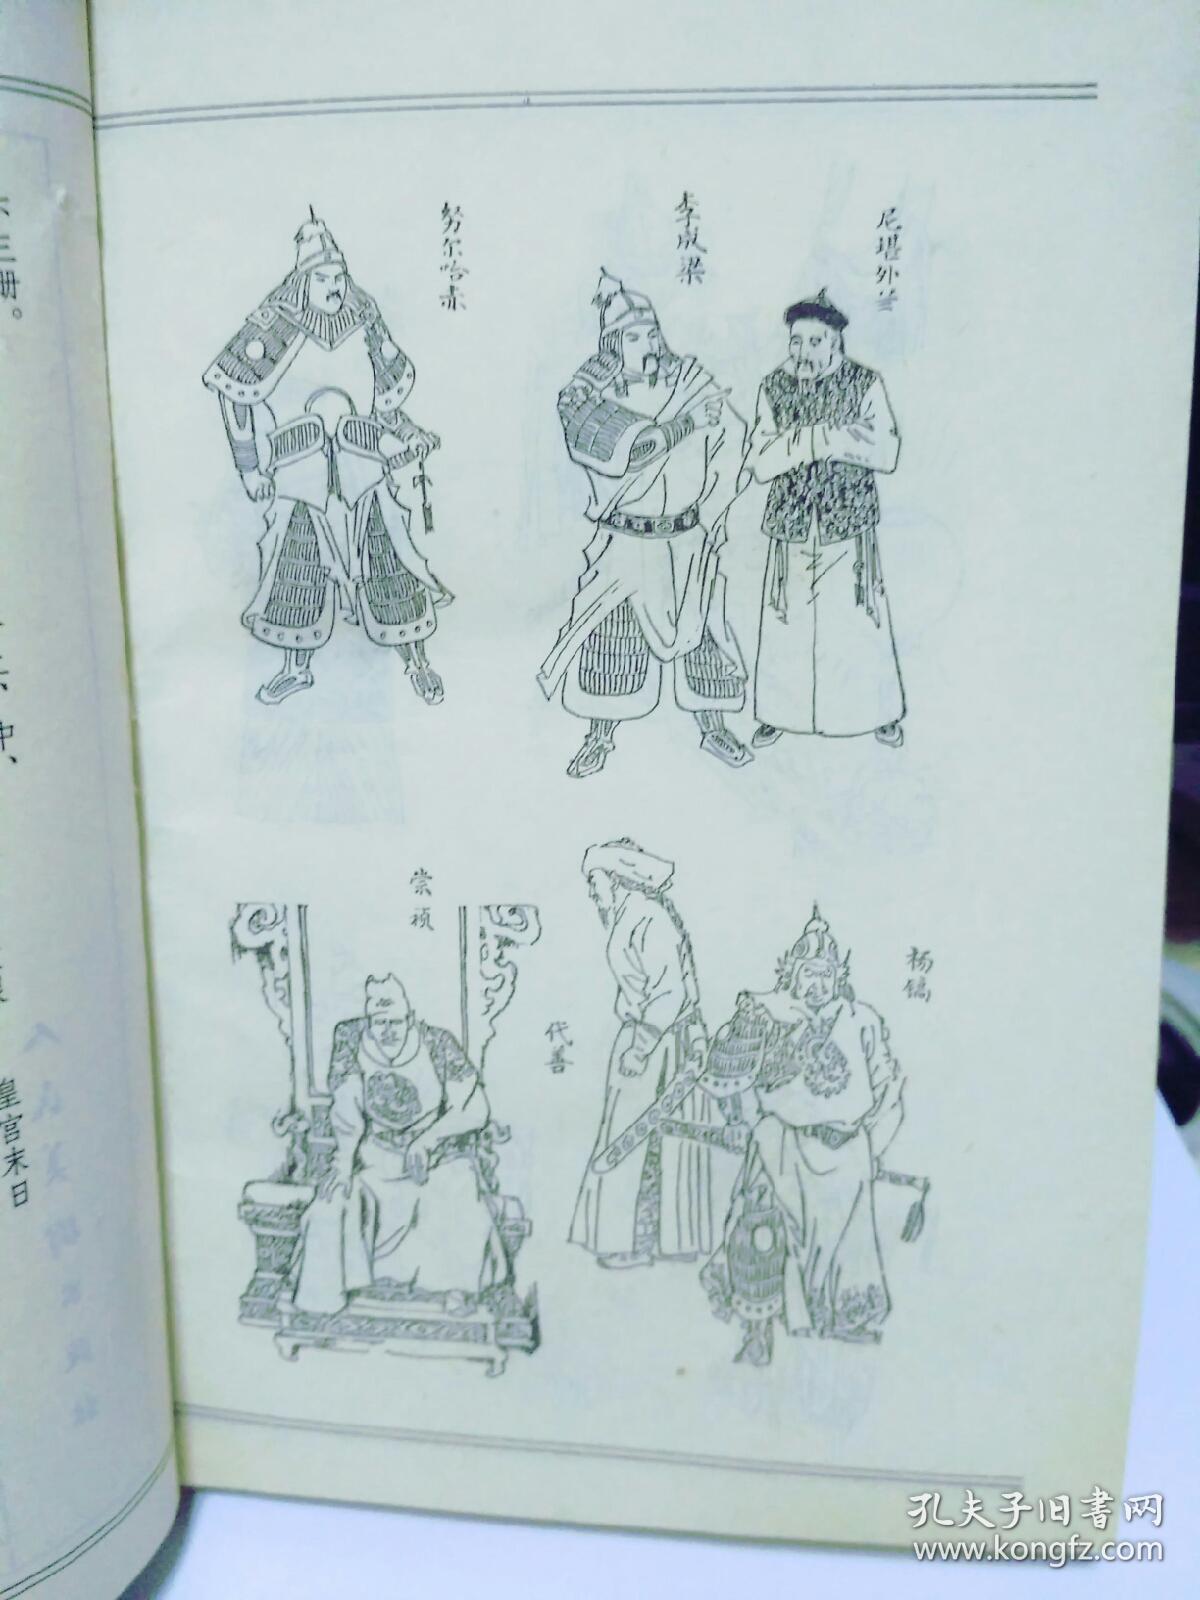 努尔哈赤
李成梁
尼堪外兰
崇祯
代善
杨镐
三册。
中、
皇宫末日
孔夫子旧书网
www.kongfz.com